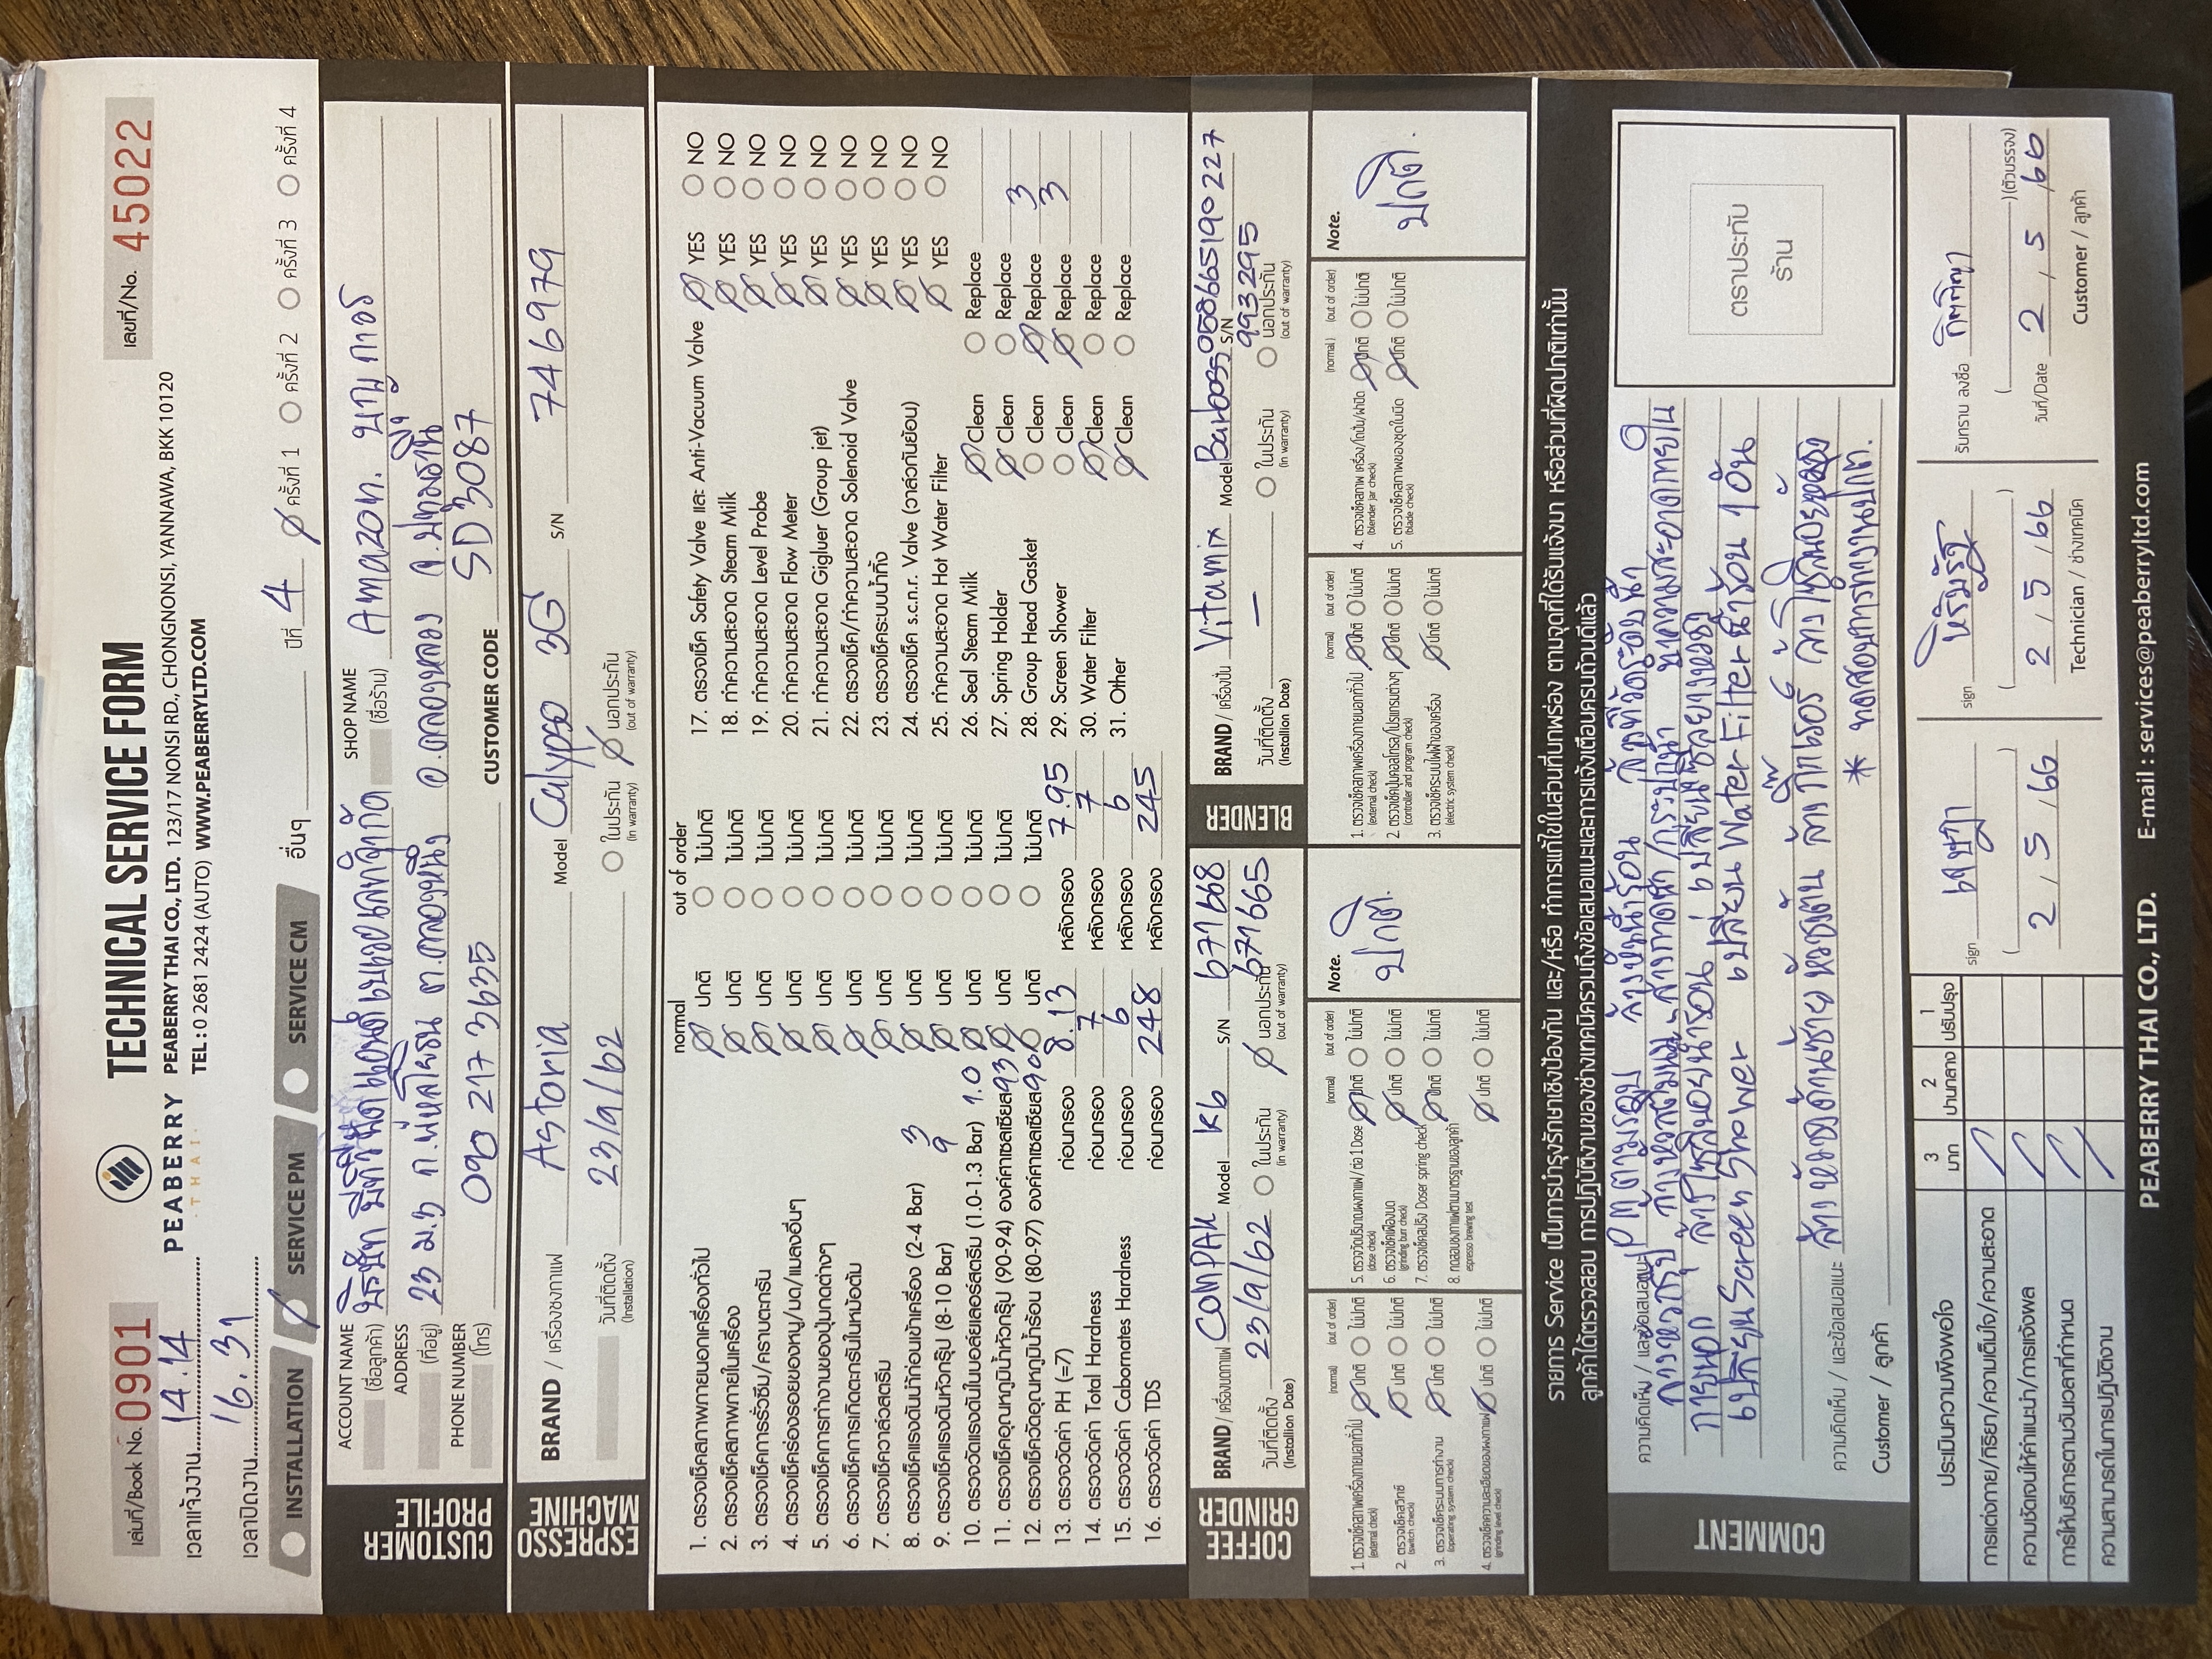 เล่มที่/Book No. 0901
PEABERRY
THAI
TECHNICAL SERVICE FORM
PEABERRY THAI CO., LTD. 123/17 NONSI RD., CHONGNONSI, YANNAWA, BKK 10120
TEL : 0 2681 2424 (AUTO) WWW.PEABERRYLTD.COM
เลขที่/No. 45022
เวลาแจ้งงาน 14.14
เวลาปิดงาน 16.31
INSTALLATION SERVICE PM SERVICE CM อื่นๆ ปีที่ 4 ครั้งที่ 1 ครั้งที่ 2 ครั้งที่ 3 ครั้งที่ 4
CUSTOMER PROFILE
ACCOUNT NAME (ชื่อลูกค้า) บริษัท บีทีวี ฟู้ด แอนด์ เบเวอเลท จำกัด SHOP NAME (ชื่อร้าน) Amazon. บุญถาวร
ADDRESS (ที่อยู่) 23 ม.3 ถ.พหลโยธิน ต.คลองหนึ่ง อ.คลองหลวง จ.ปทุมธานี
PHONE NUMBER (โทร) 090 217 3635 CUSTOMER CODE SD3087
ESPRESSO MACHINE
BRAND / เครื่องชงกาแฟ Astoria Model Calypso 3G S/N 746979
วันที่ติดตั้ง (Installation) 23/9/62 ในประกัน (in warranty) นอกประกัน (out of warranty)
normal out of order
1. ตรวจเช็คสภาพภายนอกเครื่องทั่วไป ปกติ ไม่ปกติ
2. ตรวจเช็คสภาพภายในเครื่อง ปกติ ไม่ปกติ
3. ตรวจเช็คการรั่วซึม/คราบตะกรัน ปกติ ไม่ปกติ
4. ตรวจเช็คร่องรอยของหนู/มด/แมลงอื่นๆ ปกติ ไม่ปกติ
5. ตรวจเช็คการทำงานของปุ่มกดต่างๆ ปกติ ไม่ปกติ
6. ตรวจเช็คการเกิดตะกรันในหม้อต้ม ปกติ ไม่ปกติ
7. ตรวจเช็ควาล์วสตรีม ปกติ ไม่ปกติ
8. ตรวจเช็คแรงดันน้ำก่อนเข้าเครื่อง (2-4 Bar) 3 ปกติ ไม่ปกติ
9. ตรวจเช็คแรงดันหัวกรุ๊ป (8-10 Bar) 9 ปกติ ไม่ปกติ
10. ตรวจวัดแรงดันในบอล์ยเลอร์สตรีม (1.0-1.3 Bar) 1.0 ปกติ ไม่ปกติ
11. ตรวจเช็คอุณหภูมิน้ำหัวกรุ๊ป (90-94) องศ์ศาเซลเซียส 93 ปกติ ไม่ปกติ
12. ตรวจเช็ควัดอุณหภูมิน้ำร้อน (80-97) องศ์ศาเซลเซียส 90 ปกติ ไม่ปกติ
13. ตรวจวัดค่า PH (=7) ก่อนกรอง 8.13 หลังกรอง 7.95
14. ตรวจวัดค่า Total Hardness ก่อนกรอง 7 หลังกรอง 7
15. ตรวจวัดค่า Cabornates Hardness ก่อนกรอง 6 หลังกรอง 6
16. ตรวจวัดค่า TDS ก่อนกรอง 248 หลังกรอง 245
17. ตรวจเช็ค Safety Valve และ Anti-Vacuum Valve YES NO
18. ทำความสะอาด Steam Milk YES NO
19. ทำความสะอาด Level Probe YES NO
20. ทำความสะอาด Flow Meter YES NO
21. ทำความสะอาด Gigluer (Group jet) YES NO
22. ตรวจเช็ค/ทำความสะอาด Solenoid Valve YES NO
23. ตรวจเช็คระบบน้ำทิ้ง YES NO
24. ตรวจเช็ค s.c.n.r. Valve (วาล์วกันย้อน) YES NO
25. ทำความสะอาด Hot Water Filter YES NO
26. Seal Steam Milk Clean Replace
27. Spring Holder Clean Replace
28. Group Head Gasket Clean Replace 3
29. Screen Shower Clean Replace 3
30. Water Filter Clean Replace
31. Other Clean Replace
COFFEE GRINDER
BRAND / เครื่องบดกาแฟ COMPAK Model K6 S/N 671668
671665
วันที่ติดตั้ง (Installion Date) 23/9/62 ในประกัน (in warranty) นอกประกัน (out of warranty)
BLENDER
BRAND / เครื่องปั่น Vitamix Model Barboss S/N 058665190227
993295
วันที่ติดตั้ง (Installion Date) — ในประกัน (in warranty) นอกประกัน (out of warranty)
(normal) (out of order)
1. ตรวจเช็คสภาพเครื่องภายนอกทั่วไป (external check) ปกติ ไม่ปกติ
2. ตรวจเช็คสวิทซ์ (switch check) ปกติ ไม่ปกติ
3. ตรวจเช็คระบบการทำงาน (operating system check) ปกติ ไม่ปกติ
4. ตรวจเช็คความละเอียดของผงกาแฟ (grinding level check) ปกติ ไม่ปกติ
(normal) (out of order)
5. ตรวจวัดปริมาณผงกาแฟ/ต่อ 1 Dose (dose check) ปกติ ไม่ปกติ
6. ตรวจเช็คเฟืองบด (grinding burr check) ปกติ ไม่ปกติ
7. ตรวจเช็คสปริง Doser spring check ปกติ ไม่ปกติ
8. ทดสอบชงกาแฟตามมาตรฐานของลูกค้า espresso brewing test ปกติ ไม่ปกติ
Note. ปกติ.
(normal) (out of order)
1. ตรวจเช็คสภาพเครื่องภายนอกทั่วไป (external check) ปกติ ไม่ปกติ
2. ตรวจเช็คปุ่มคอลโทรล/โปรแกรมต่างๆ (controller and program check) ปกติ ไม่ปกติ
3. ตรวจเช็คระบบไฟฟ้าของเครื่อง (electric system check) ปกติ ไม่ปกติ
(normal ) (out of order)
4. ตรวจเช็คสภาพ เครื่อง/โถปั่น/ฝาปิด (blender jar check) ปกติ ไม่ปกติ
5. ตรวจเช็คสภาพของชุดใบมีด (blade check) ปกติ ไม่ปกติ
Note. ปกติ.
รายการ Service เป็นการบำรุงรักษาเชิงป้องกัน และ/หรือ ทำการแก้ไขในส่วนที่บกพร่อง ตามจุดที่ได้รับแจ้งมา หรือส่วนที่ผิดปกติเท่านั้น
ลูกค้าได้ตรวจสอบ การปฏิบัติงานของช่างเทคนิครวมถึงข้อเสนอแนะและการแจ้งเตือนครบถ้วนดีแล้ว
COMMENT
ความคิดเห็น / และข้อเสนอแนะ PM ตามรอบ ล้างหัวน้ำร้อน ล้างที่วัดระดับน้ำ
ล้างหัวกรุ๊ป ล้างหัวสตีมนม ล้างถาดน้ำ/กระปุกน้ำ ทำความสะอาดภายใน
ภายนอก ล้างโซลินอยน้ำร้อน เปลี่ยนซีลยางหัวชง
เปลี่ยน Screen Shower เปลี่ยน Water Filter น้ำร้อน 1 อัน
ความคิดเห็น / และข้อเสนอแนะ ล้างหัวชงด้านซ้าย หัวชงตัน ล้างกิ๊กเรอร์ ล้างโซลินอยหัวชง
* ทดสอบการทำงานปกติ.
Customer / ลูกค้า
ตราประทับ
ร้าน
ประเมินความพึงพอใจ 3 มาก 2 ปานกลาง 1 ปรับปรุง
การแต่งกาย/กิริยา/ความเต็มใจ/ความสะอาด
ความชัดเจนให้คำแนะนำ/การแจ้งผล
การให้บริการตามวันเวลาที่กำหนด
ความสามารถในการปฏิบัติงาน
sign เจษฎา
( )
2 / 5 / 66
sign หิรัมรัฐ
( )
2 / 5 / 66
Technician / ช่างเทคนิค
รับทราบ ลงชื่อ
( ) (ตัวบรรจง)
วันที่/Date 2 / 5 / 66
Customer / ลูกค้า
PEABERRY THAI CO., LTD. E-mail : services@peaberryltd.com